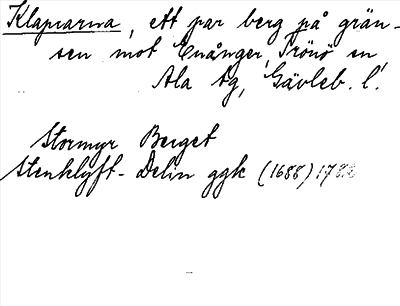 Klaparna, ett par berg på grän-
sen mot Enånger, Trönö sn,
Ala tg, Gävleb. l.
Stormyr Berget
Stenklyft- Delin ggk (1688) 1788